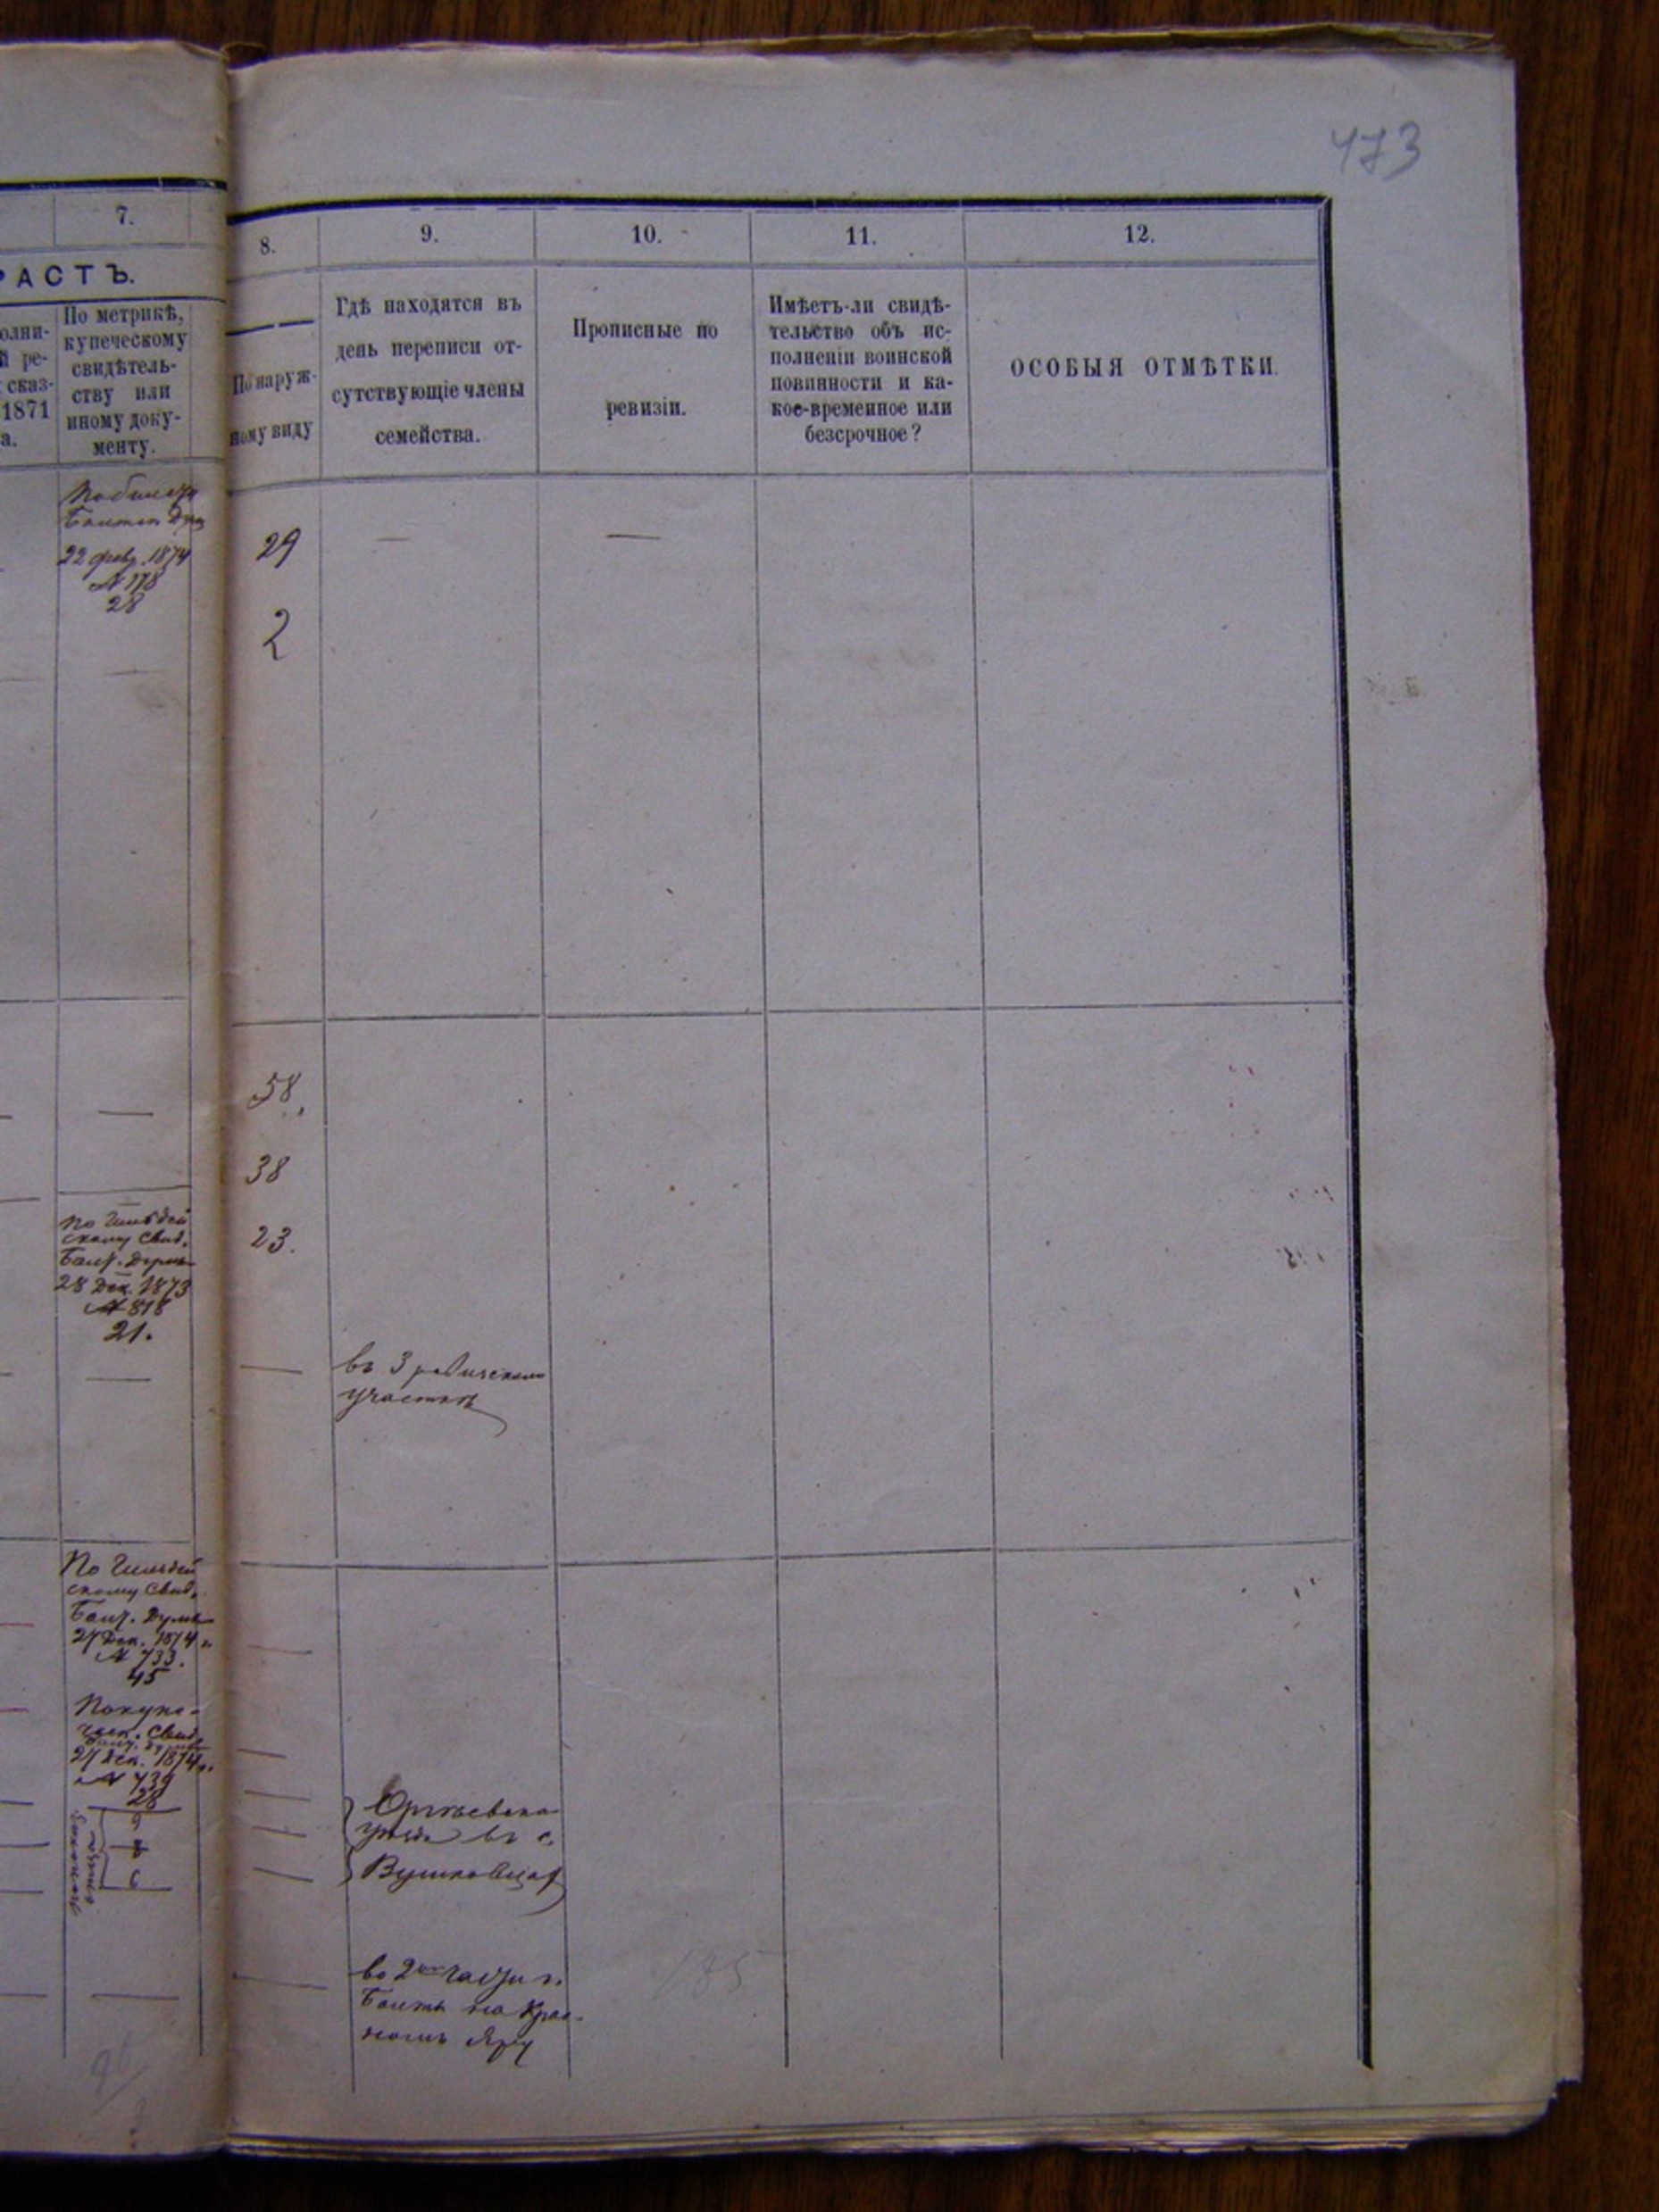 473
7.
РАСТЪ.
олни-
й ре-
сказ-
1871
а.
По метрикѣ,
купеческому
свидѣтель-
ству или
иному доку-
менту.
8.
По наруж-
ному виду
9.
Гдѣ находятся въ
день переписи от-
сутствующіе члены
семейства.
10.
Прописные по
ревизіи.
11.
Имѣетъ-ли свидѣ-
тельство объ ис-
полненіи воинской
повинности и ка-
кое-временное или
безсрочное?
12.
ОСОБЫЯ ОТМѢТКИ.
22 февр. 1874
№ 178
28
29
—
—
2
—
58.
—
38
По Гильдей
скому Свид.
Балт. Думы
28 Дек. 1873
№ 818
21.
23.
—
—
въ 3 
участкѣ
По Гильдей
скому Свид.
Балт. Думы
27 Дек. 1874 г.
№ 733.
45
По купе-
ческ. Свид.
Балт. Думы
27 Дек. 1874 г.
№ 739
28
9
8
6
Оргѣевскаго
уѣзда въ с.
во 2ой части г.
Балты на Крас-
номъ Яру
185
96